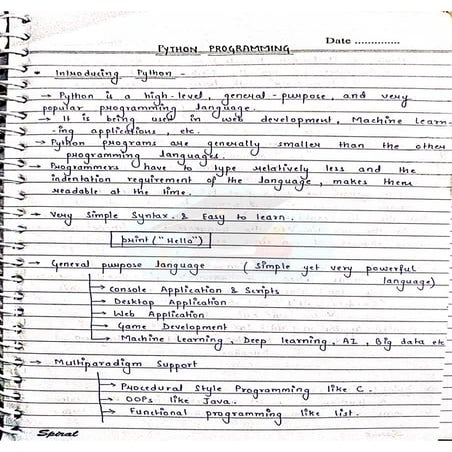 Date ..............
PYTHON PROGRAMMING
• Introducing Python -
→ Python is a high-level, general-purpose, and very
popular programming language.
→ It is being used in web development, Machine Learn
-ing applications, etc.
→ Python programs are generally smaller than the other
programming languages.
→ Programmers have to type relatively less and the
indentation requirement of the language, makes them
readable at the time.
→ Very Simple Syntax & Easy to learn.
print ("Hello")
→ General purpose language (Simple yet very powerful
language)
→ Console Application & Scripts
→ Desktop Application
→ Web Application
→ Game Development
→ Machine Learning, Deep learning, AI, Big data etc
→ Multiparadigm Support
→ Procedural Style Programming like C.
→ OOPs like Java.
→ Functional programming like list.
Spiral